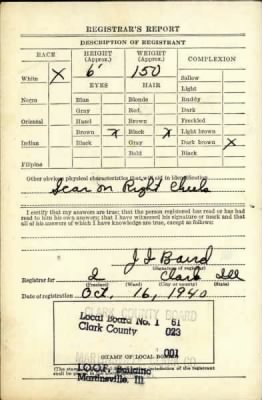 REGISTRAR'S REPORT
DESCRIPTION OF REGISTRANT
RACE HEIGHT (Approx.) WEIGHT (Approx.) COMPLEXION
White X 6' 150 Sallow
EYES HAIR Light
Negro Blue Blonde Ruddy
Gray Red Dark
Oriental Hazel Brown Freckled
Brown X Black X Light brown
Indian Black Gray Dark brown X
Bald Black
Filipino
Other obvious physical characteristics that will aid in identification
Scar on Right Cheek
I certify that my answers are true; that the person registered has read or has had
read to him his own answers; that I have witnessed his signature or mark and that
all of his answers of which I have knowledge are true, except as follows:
J I Baird
(Signature of registrar)
Registrar for 2 Clark Ill
(Precinct) (Ward) (City or county) (State)
Date of registration Oct. 16, 1940
CLARK COUNTY BOARD
Local Board No. 1 61
Clark County 023
001
I.O.O.F. Building
Martinsville, Ill
STAMP OF LOCAL BOARD